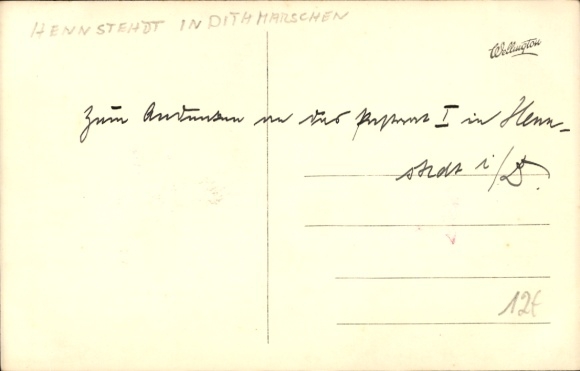 HENNSTEHDT IN DITHMARSCHEN
Wellington
Zum Andenken an das Pastorat I in Henn-
stedt i/D.
12€